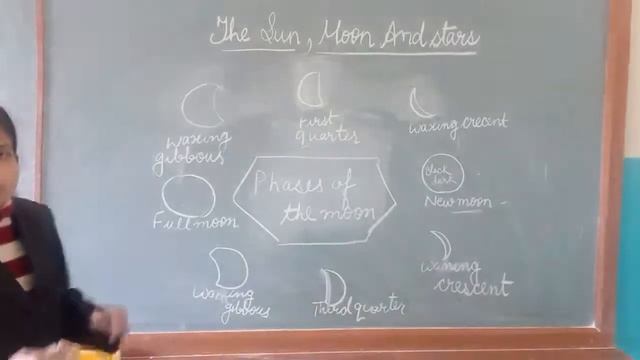 The Sun, Moon And stars
waxing
gibbous
First
quarter
waxing crecent
Phases of
the moon
Full moon
black
dark
New moon
waning
gibbous
Third quarter
waning
crescent